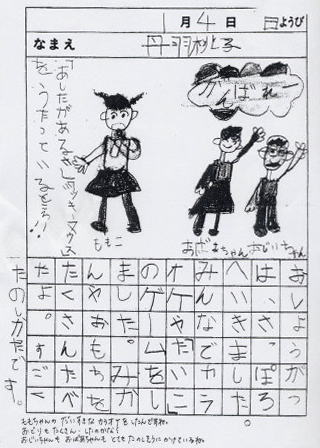 1月4日 日ようび
なまえ 丹羽桃子
がんばれー
「あしたがあるさ」「ミッキーマウス」
をうたっているところ!!
ももこ
おばあちゃん おじいちゃん
おしょうがつ
は、さっぽろ
へいきました。
みんなでカラ
オケや「たいこ」
のゲームをし
ました。みか
んやおもちを
たくさんたべ
たよ。すごく
たのしかったです。
ももちゃんの だいすきな カラオケをしたんですね。
おどりも たくさん したのかな?
おじいちゃんも おばあちゃんも とても たのしそうに かけているね。